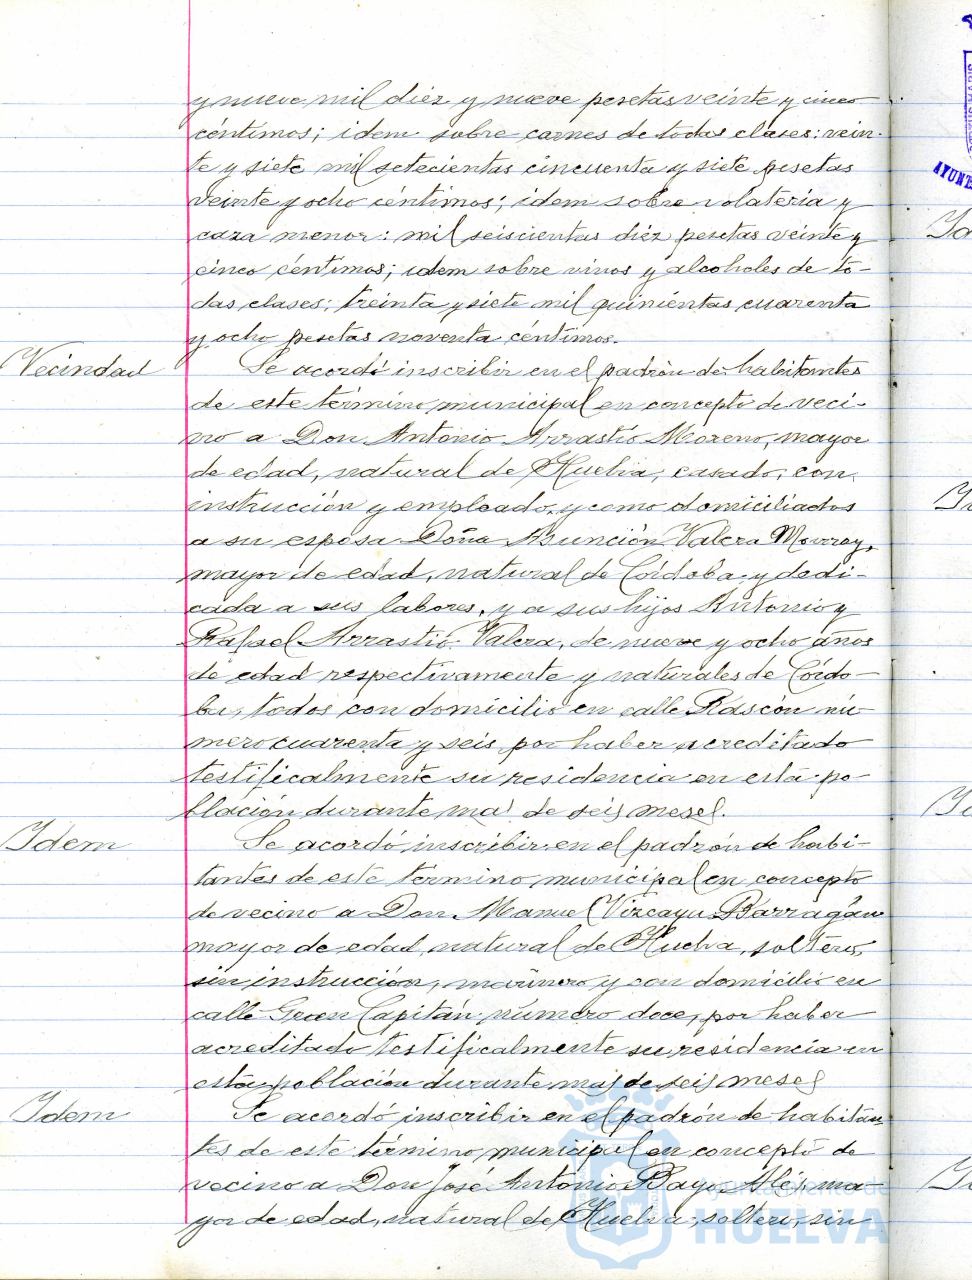 y nueve mil diez y nueve pesetas veinte y cinco
céntimos; idem sobre carnes de todas clases: vein-
te y siete mil setecientas cincuenta y siete pesetas
veinte y ocho céntimos; idem sobre volatería y
caza menor: mil seiscientas diez pesetas veinte y
cinco céntimos; idem sobre vinos y alcoholes de to-
das clases: treinta y siete mil quinientas cuarenta
y ocho pesetas noventa céntimos.
Vecindad
Se acordó inscribir en el padrón de habitantes
de este término municipal en concepto de veci-
no a Don Antonio Arrastio Moreno, mayor
de edad, natural de Huelva, casado, con
instrucción y empleado, y como domiciliados
a su esposa Doña Asunción Valera Monroy,
mayor de edad, natural de Córdoba y dedi-
cada a sus labores, y a sus hijos Antonio y
Rafael Arrastio Valera, de nueve y ocho años
de edad respectivamente y naturales de Córdo-
ba, todos con domicilio en calle Rascón nú-
mero cuarenta y seis, por haber acreditado
testificalmente su residencia en esta po-
blación durante mas de seis meses.
Idem
Se acordó inscribir en el padrón de habi-
tantes de este término municipal en concepto
de vecino a Don Manuel Vizcaya Barragán
mayor de edad, natural de Huelva, soltero,
sin instrucción, marinero y con domicilio en
calle Gran Capitán número doce, por haber
acreditado testificalmente su residencia en
esta población durante mas de seis meses
Idem
Se acordó inscribir en el padrón de habitan-
tes de este término municipal en concepto de
vecino a Don José Antonio Bayo Alés, ma-
yor de edad, natural de Huelva, soltero, sin
Ayuntamiento de
HUELVA